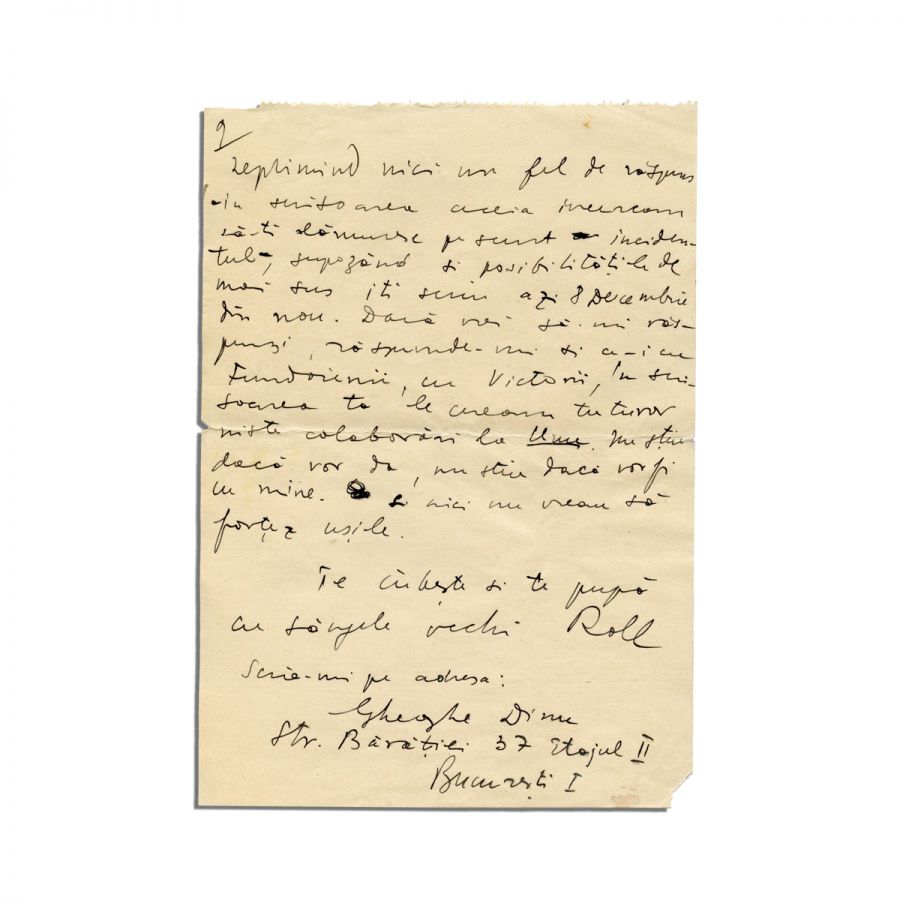 2
neprimind nici un fel de răspuns
-în scrisoarea aceia încercam
să-ți lămuresc pe scurt inciden-
tul, supozând si posibilitățile de
mai sus iti scriu azi 8 Decembrie
din nou. Dacă vrei să-mi răs-
punzi, răspunde-mi si ce-i cu
Fundoienii, cu Victorii, în scri-
soarea ta le ceream tuturor
niste colaborări la unu. Nu știu
dacă vor da, nu stiu dacă vor fi
cu mine. si nici nu vreau să
forțez ușile.
Te iubește si te pupă
cu sângele vechi Roll
Scrie-mi pe adresa:
Gheorghe Dinu
Str. Bărăției 37 Etajul II
București I